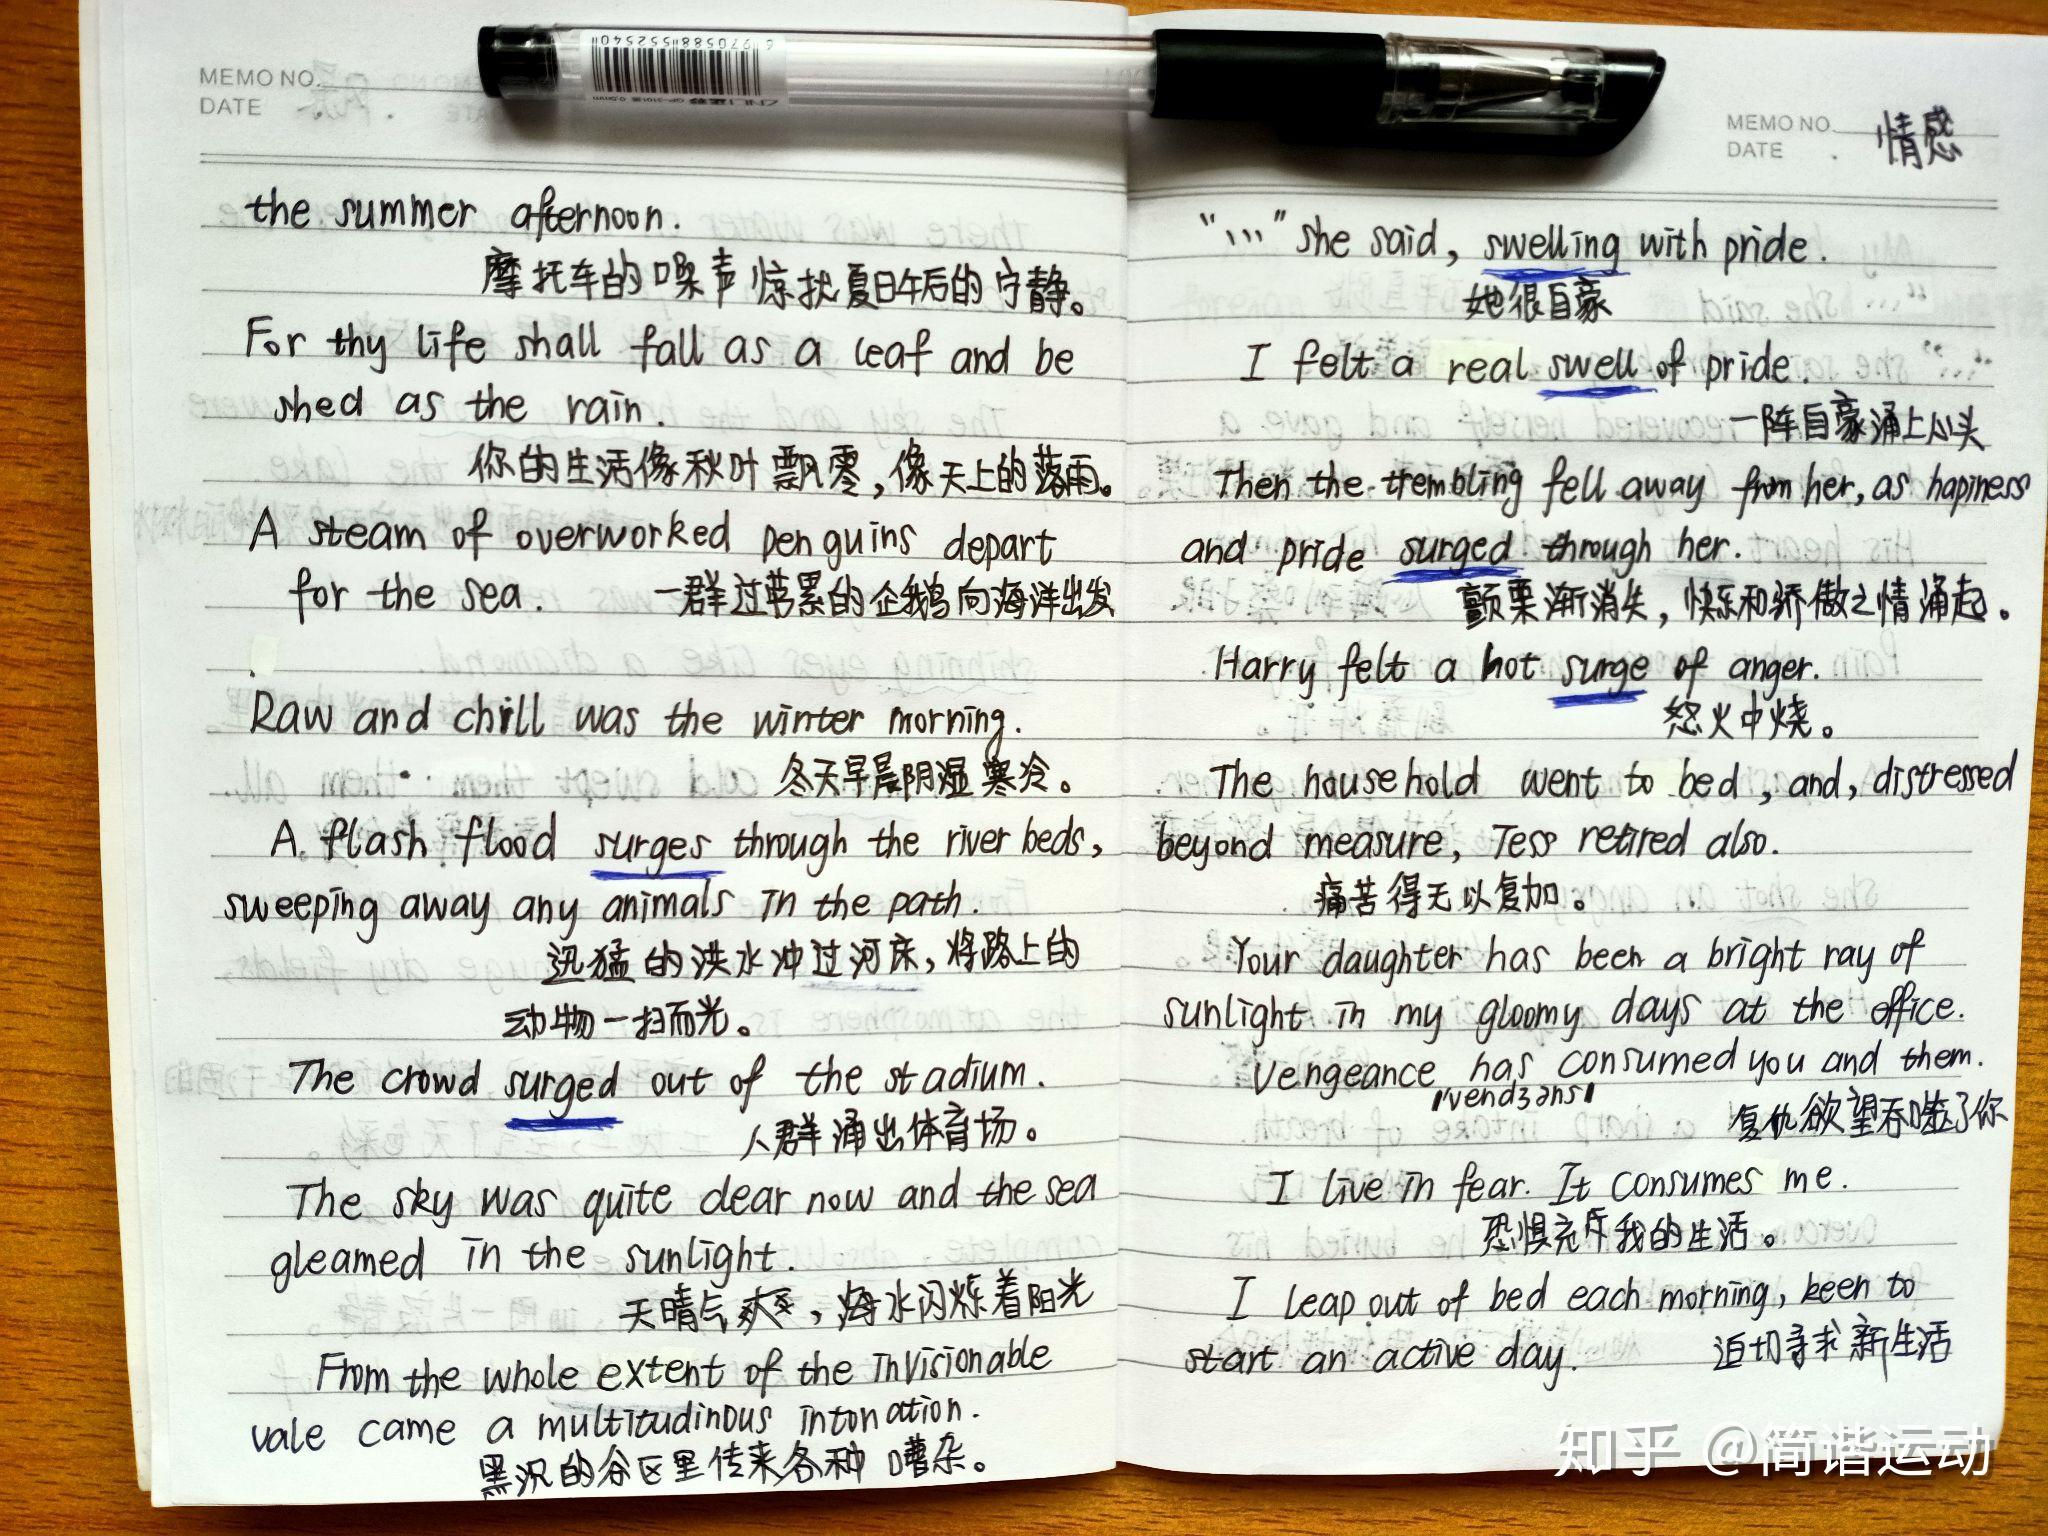 MEMO NO.
DATE
the summer afternoon.
摩托车的噪声惊扰夏日午后的宁静。
For thy life shall fall as a leaf and be
shed as the rain.
你的生活像秋叶飘零，像天上的落雨。
A steam of overworked penguins depart
for the sea. 一群过劳累的企鹅向海洋出发
Raw and chill was the winter morning.
冬天早晨阴湿寒冷。
A flash flood surges through the river beds,
sweeping away any animals in the path.
迅猛的洪水冲过河床，将路上的
动物一扫而光。
The crowd surged out of the stadium.
人群涌出体育场。
The sky was quite clear now and the sea
gleamed in the sunlight.
天晴气爽，海水闪烁着阳光
From the whole extent of the invisionable
vale came a multitudinous intonation.
黑沉的谷区里传来各种嘈杂。
6970588552540
0.5mm
MEMO NO.
DATE
情感
"..." she said, swelling with pride.
她很自豪
I felt a real swell of pride.
一阵自豪涌上心头
Then the trembling fell away from her, as hapiness
and pride surged through her.
颤栗渐消失，快乐和骄傲之情涌起。
Harry felt a hot surge of anger.
怒火中烧。
The household went to bed, and, distressed
beyond measure, Tess retired also.
痛苦得无以复加。
Your daughter has been a bright ray of
sunlight in my gloomy days at the office.
Vengeance has consumed you and them.
/'vendʒəns/
复仇欲望吞噬了你
I live in fear. It consumes me.
恐惧充斥我的生活。
I leap out of bed each morning, keen to
start an active day. 迫切寻求新生活
知乎 @简谐运动